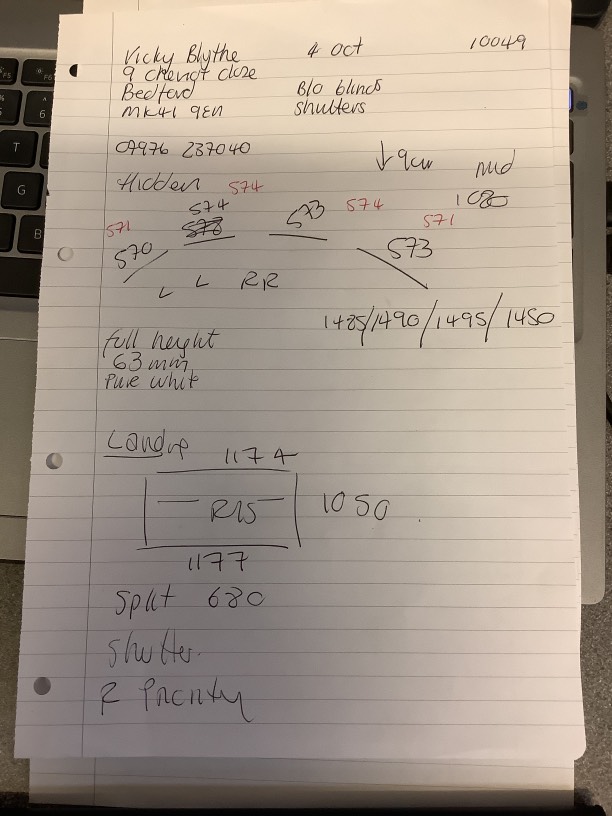 Vicky Blythe 4 Oct 10049
9 close
Bedford B/O blinds
MK41 9EN shutters
07976 237040
↓9cm mid
Hidden 574 1080
574 573 574 571
571 578
570 573
L L RR
1485/1490/1495/1450
full height
63mm
Pure white
Landing
1174
R15 1050
1177
Split 680
Shutter.
R Priority